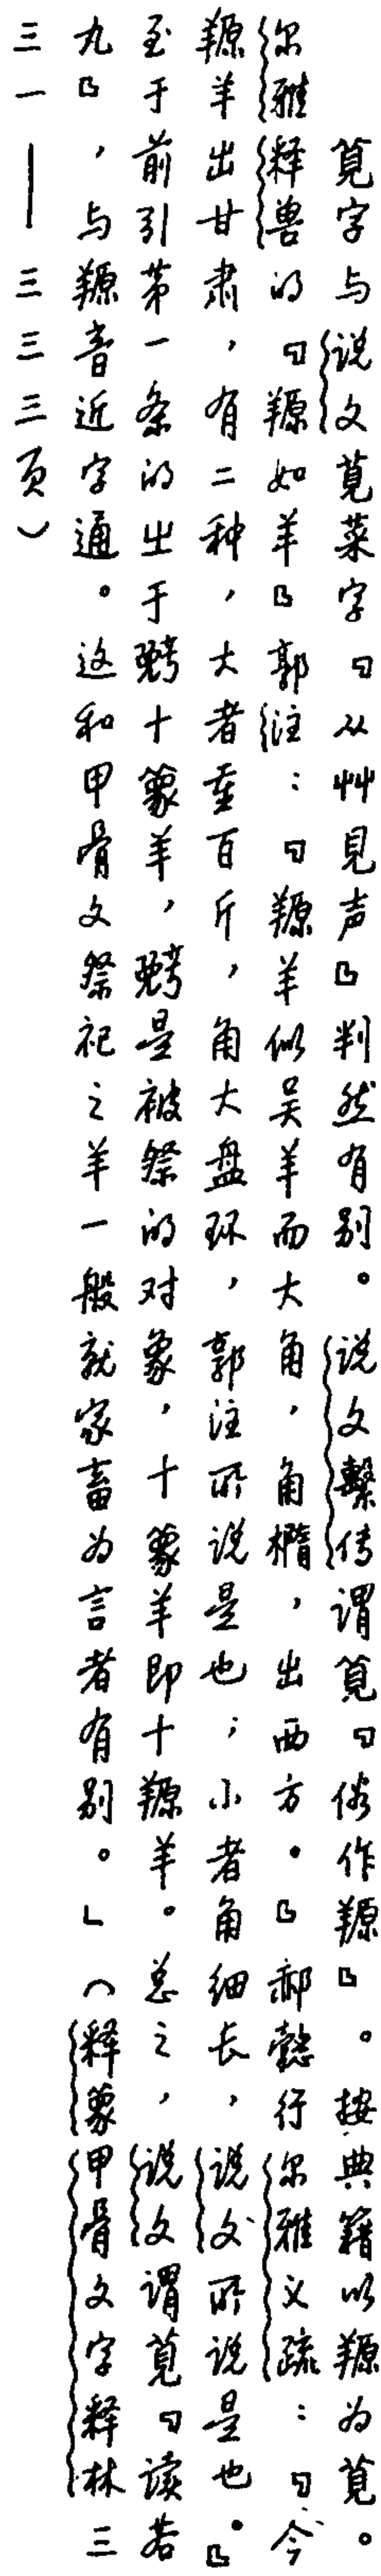 萈字与说文莧菜字『从艸見声』判然有别。说文繫传谓萈『俗作羱』。按典籍以羱为萈。
尔雅释兽的『羱如羊』郭注：『羱羊似吴羊而大角，角椭，出西方。』郝懿行尔雅义疏：『今
羱羊出甘肃，有二种，大者重百斤，角大盘环，郭注所说是也；小者角细长，说文所说是也。』
至于前引第一条的㞢于十萈羊，是被祭的对象，十萈羊即十羱羊。总之，说文谓萈『读若
丸』，与羱音近字通。这和甲骨文祭祀之羊一般就家畜为言者有别。」（释萈甲骨文字释林三
三一——三三三页）